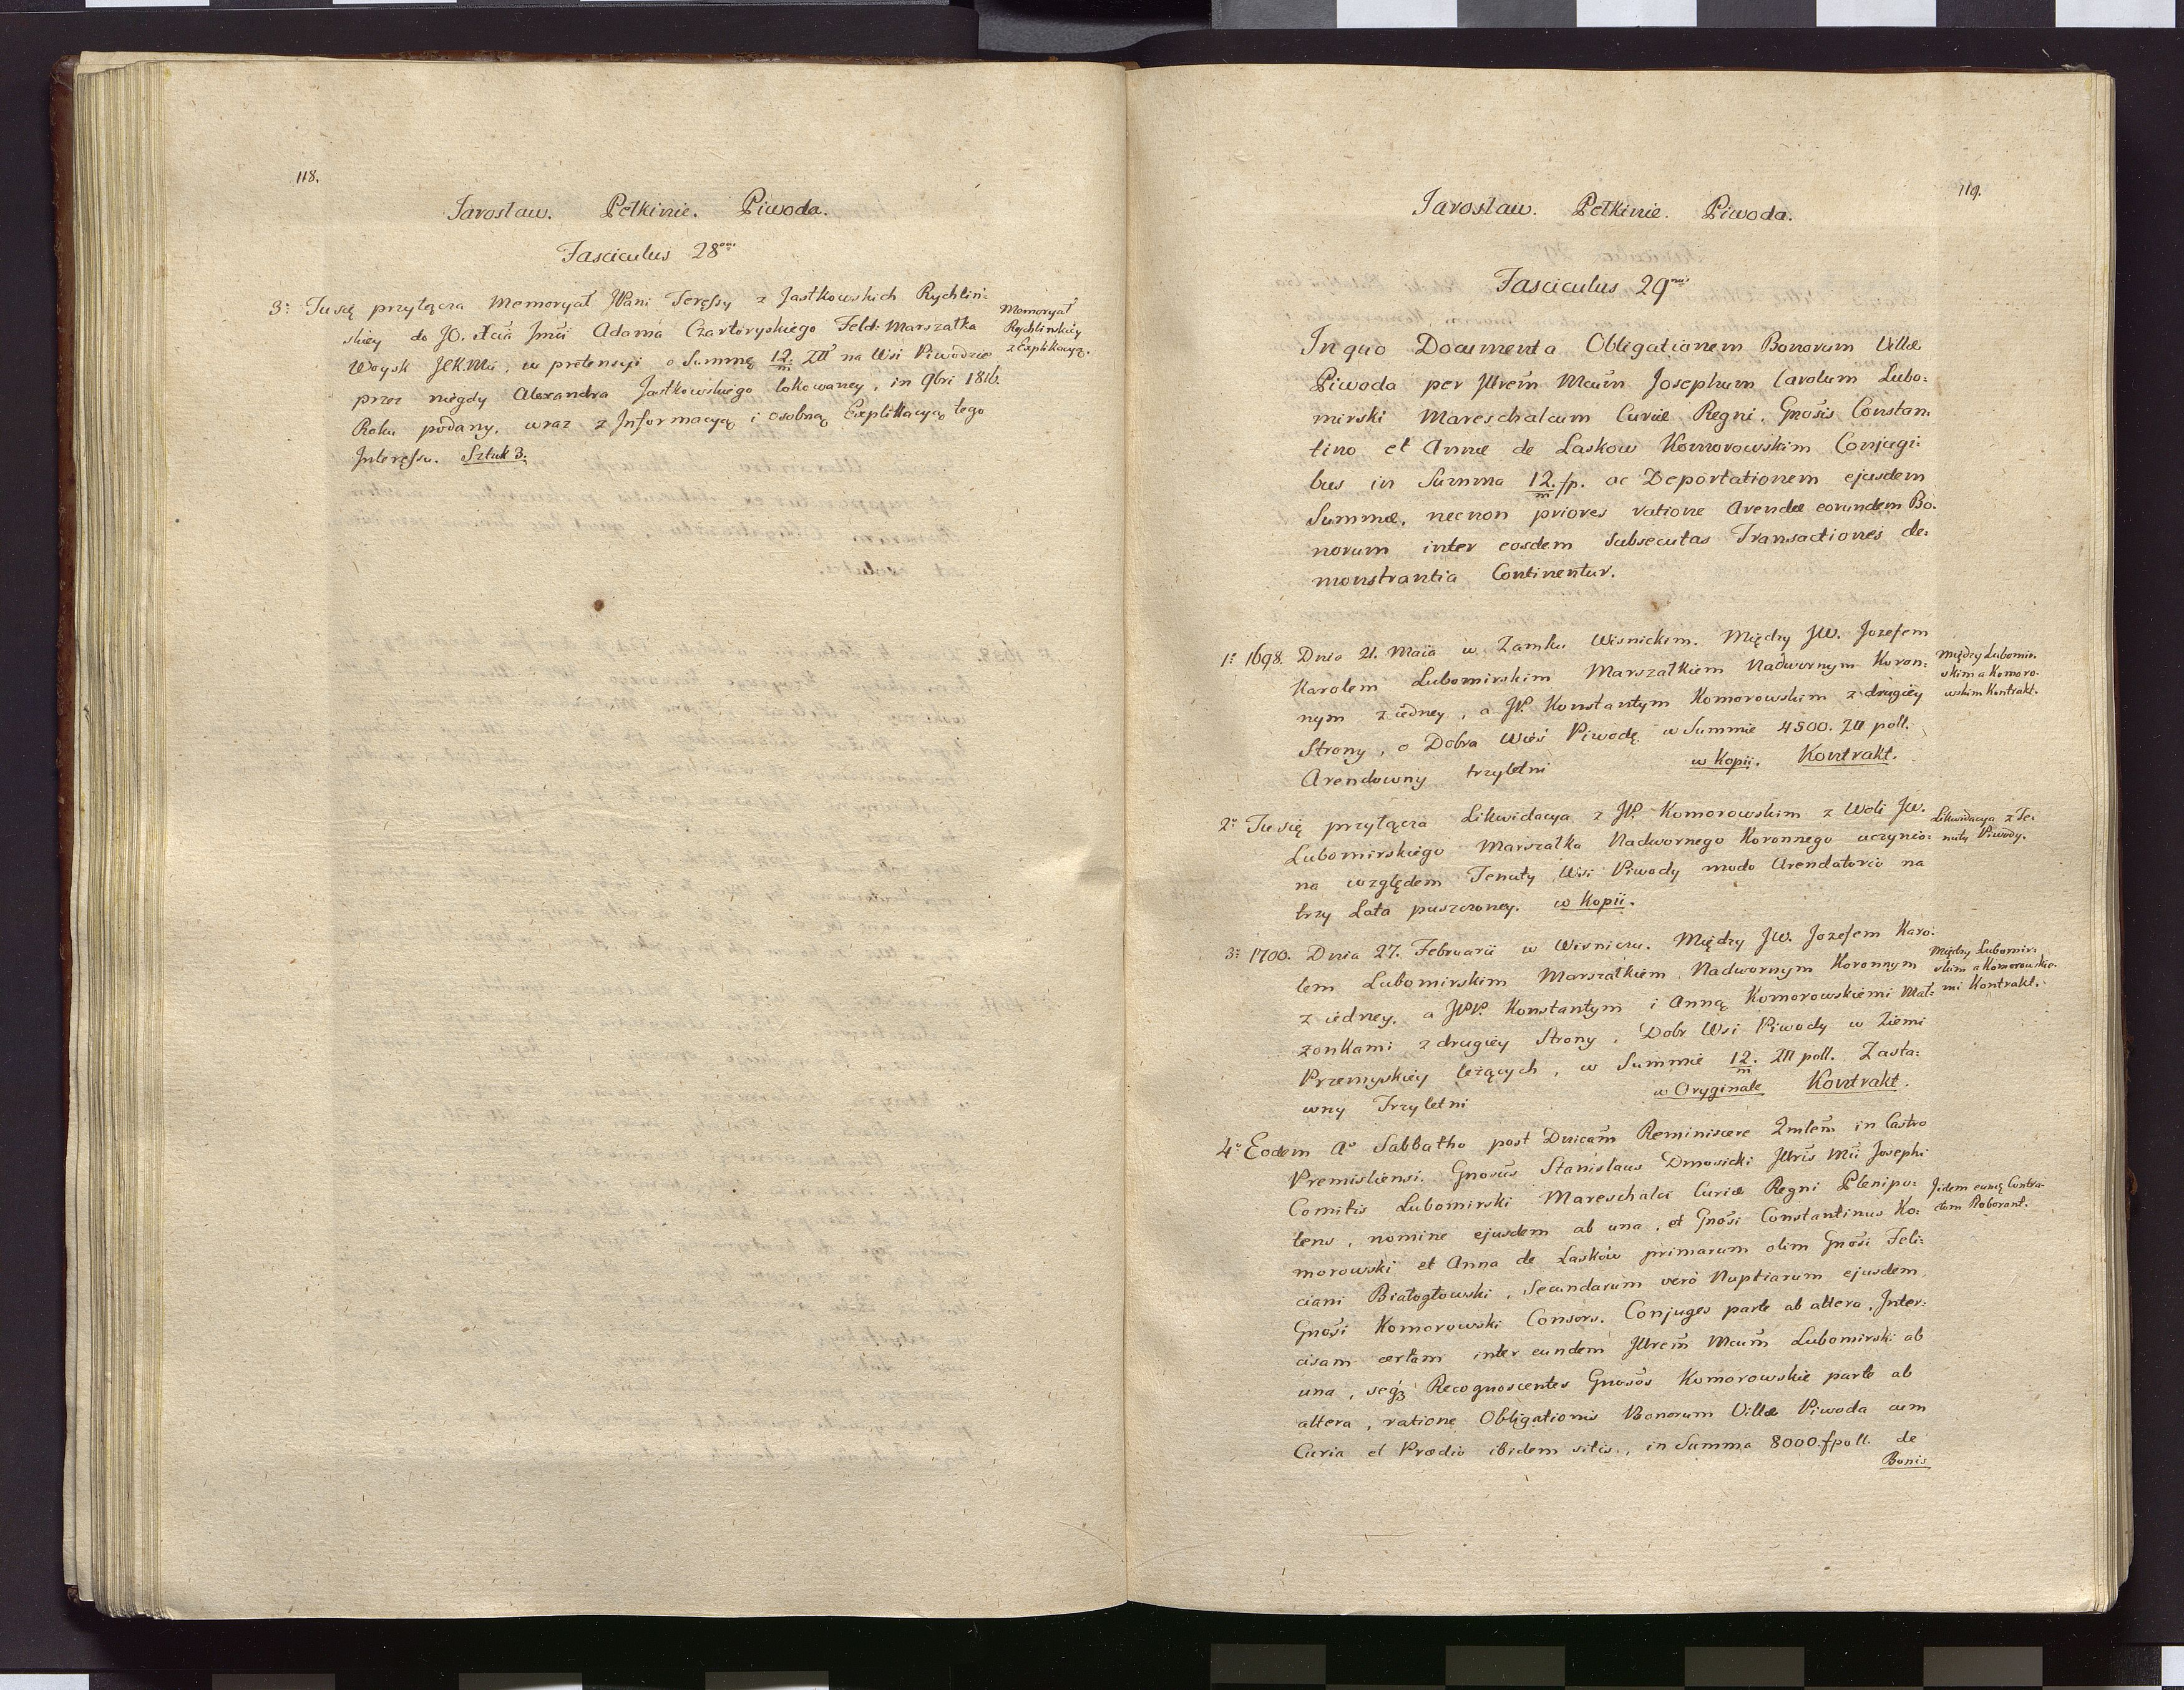 118.
Jarosław. Pełkinie. Piwoda.
Fasciculus 28ᵛᵘˢ
3º Tu się przyłącza Memoryał JPani Teressy z Jastkowskich Rychliń:
skiey do JO. Xcia Jmci Adama Czartoryskiego Feld: Marszałka
Woysk JCK.Mci, w pretensyi o Summę 12/m Złł na Wsi Piwodzie
przez niegdy Alexandra Jastkowskiego lokowaney, in 9bri 1816.
Roku podany, wraz z Informacyą i osobną Explikacyą tego
Interessu. Sztuk 3.
Memoryał
Rychlinskiey
z Explikacyą.
119.
Jarosław. Pełkinie. Piwoda.
Fasciculus 29ⁿᵘˢ
In quo Documenta Obligationem Bonorum Villæ
Piwoda per Jllrem Mcum Josephum Carolum Lubo:
mirski Mareschalcum Curiæ Regni, Gnosis Constan:
tino et Annæ de Laskow Komorowskim Conjugi:
bus in Summa 12/m. fp. ac Deportationem ejusdem
Summæ, necnon priores ratione Arendæ eorundem Bo:
norum inter eosdem subsecutas Transactiones de:
monstrantia Continentur.
1º 1698. Dnia 21. Maia w Zamku Wisnickim. Między JW. Jozefem
Karolem Lubomirskim Marszałkiem Nadwornym Koron:
nym z iedney, a JP. Konstantym Komorowskim z drugiey
Strony, o Dobra Wieś Piwodę w Summie 4500. Złł poll.
Arendowny trzyletni w Kopii. Kontrakt.
Między Lubomir:
skim a Komoro:
wskim Kontrakt.
2º Tu się przyłącza Likwidacya z JP. Komorowskim z Woli JW.
Lubomirskiego Marszałka Nadwornego Koronnego uczynio:
na względem Tenuty Wsi Piwody modo Arendatorio na
trzy Lata puszczoney. w Kopii.
Likwidacya z Te:
nuty Piwody.
3º 1700. Dnia 27. Februarii w Wisniczu. Między JW. Jozefem Karo:
lem Lubomirskim Marszałkiem Nadwornym Koronnym
z iedney, a JPP. Konstantym i Anną Komorowskiemi Mał:
zonkami z drugiey Strony, Dobr Wsi Piwody w Ziemi
Przemyskiey leżących, w Summie 12/m. Złł poll. Zasta:
wny Trzyletni w Oryginale Kontrakt.
Między Lubomir:
skim a Komorowskie:
mi Kontrakt.
4º Eodem Aº Sabbatho post Dnicam Reminiscere Qmlem in Castro
Premisliensi. Gnosus Stanislaus Dmosicki Jllris Mci Josephi
Comitis Lubomirski Mareschalci Curiæ Regni Plenipo:
tens, nomine ejusdem ab una, et Gnosi Constantinus Ko:
morowski et Anna de Lasków primarum olim Gnosi Feli:
ciani Białogłowski, Secundarum veró Nuptiarum ejusdem
Gnosi Komorowski Consors. Conjuges parte ab altera, Inter:
cisam certam inter eundem Jllrem Mcum Lubomirski ab
una, seqz Recognoscentes Gnosos Komorowskie parte ab
altera, ratione Obligationis Bonorum Villæ Piwoda cum
Curia et Prædio ibidem sitis, in Summa 8000. fpoll. de
Bonis
Jidem eumq Contra:
ctum Roborant.